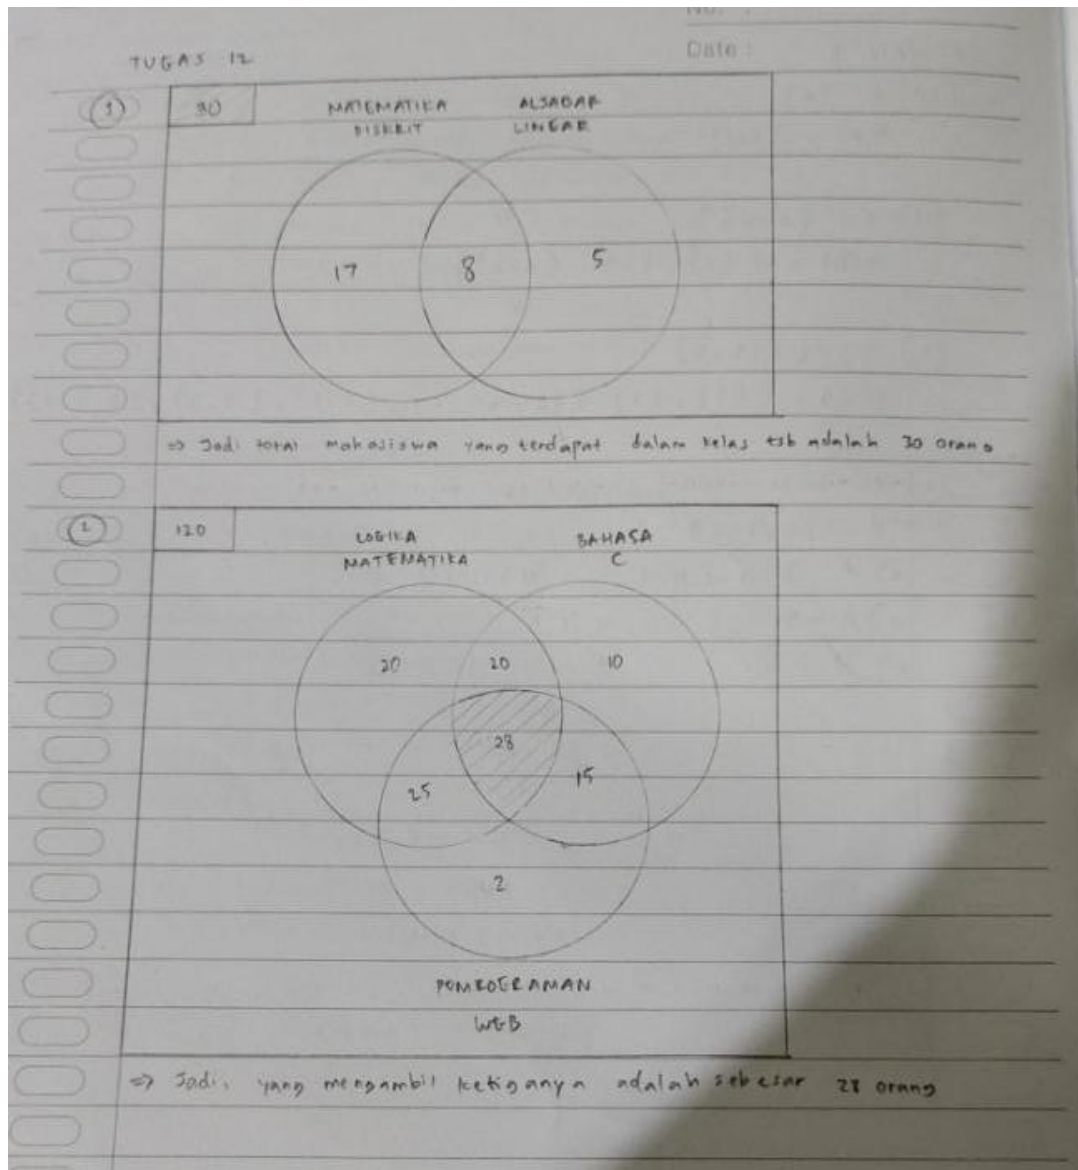 Date :
TUGAS 12
1
30
MATEMATIKA DISKRIT
ALJABAR LINEAR
17
8
5
=> Jadi total mahasiswa yang terdapat dalam kelas tsb adalah 30 orang
2
120
LOGIKA MATEMATIKA
BAHASA C
20
20
10
28
25
15
2
PEMROGRAMAN
WEB
=> Jadi, yang mengambil ketiganya adalah sebesar 28 orang